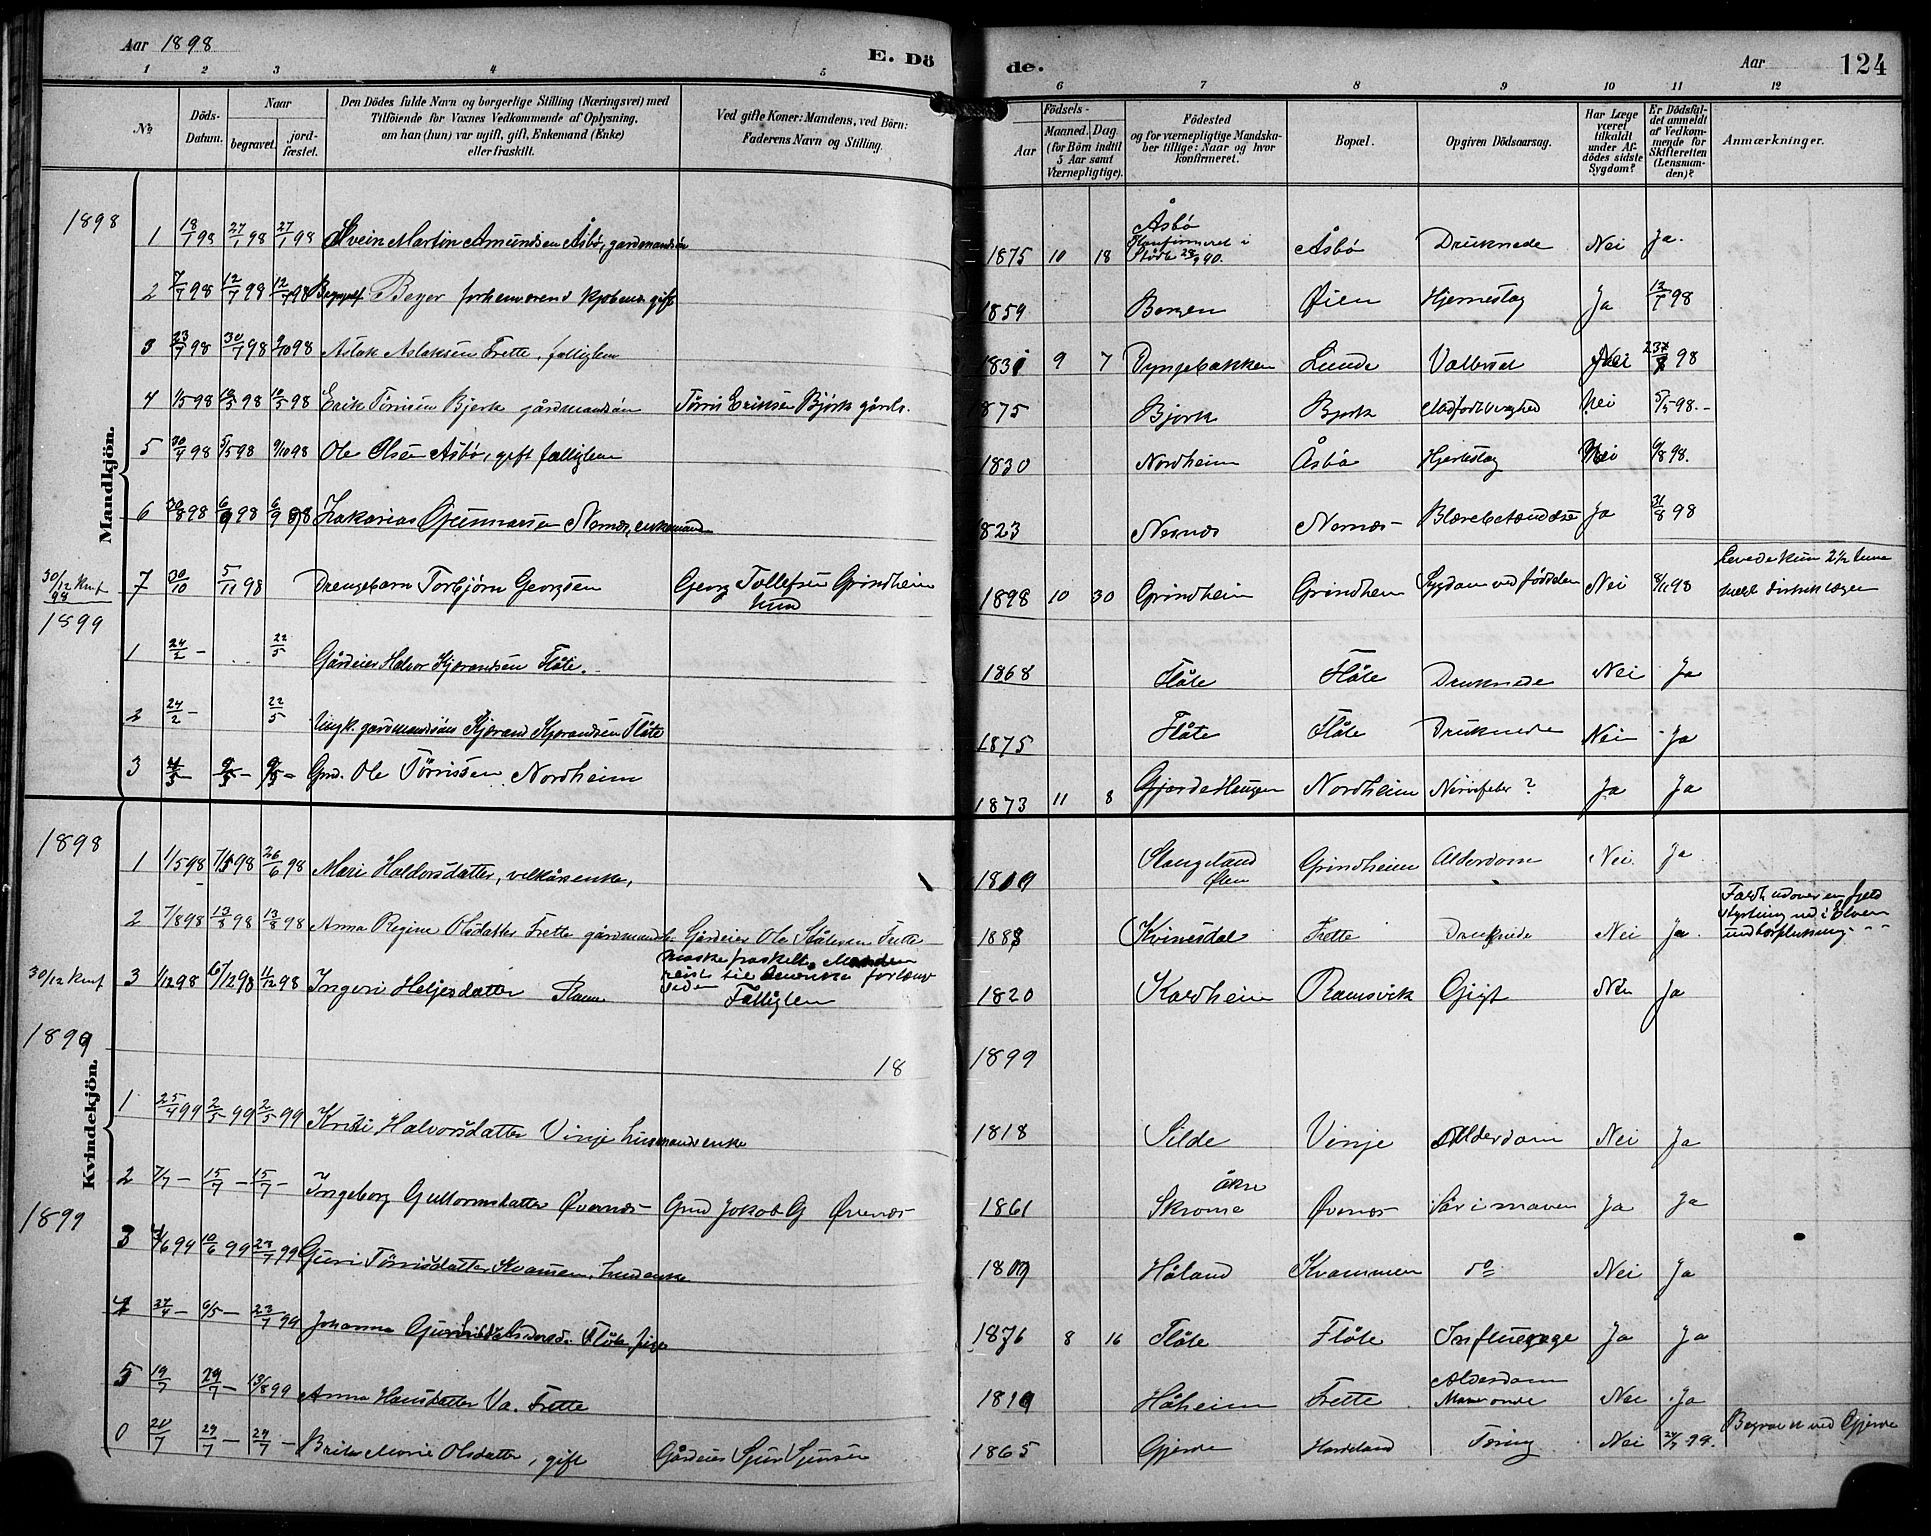 Aar 1898
E. Dö
de.
Aar
124
1 2 3 4 5 6 7 8 9 10 11 12
No
Döds-Datum.
Naar
begravet.
jord-fæstet.
Den Dödes fulde Navn og borgerlige Stilling (Næringsvei) med
Tilföiende for Voxnes Vedkommende af Oplysning,
om han (hun) var ugift, gift, Enkemand (Enke)
eller fraskilt.
Ved gifte Koner: Mandens, ved Börn:
Faderens Navn og Stilling.
Födsels-
Aar
Maaned. Dag
(for Börn indtil
5 Aar samt
Værnepligtige).
Födested
og for værnepligtige Mandska-
ber tillige: Naar og hvor
konfirmeret.
Bopæl.
Opgiven Dödsaarsag.
Har Læge
været
tilkaldt
under Af-
dödes sidste
Sygdom?
Er Dödsfal-
det anmeldt
af Vedkom-
mende for
Skifteretten
(Lensman-
den)?
Anmærkninger.
Mandkjön.
1898
1 18/1 98 27/1 98 27/1 98 Svein Martin Amundsen Åsbø, gardmandsøn 1875 10 18 Åsbø Konfirmeret i 28/9 90. Åsbø Druknede Nei Ja.
2 7/7 98 12/7 98 12/7 98 Beyer forhenværend kjøbm. gift 1859 Bergen Øien Hjerneslag Ja 12/7 98
3 23/7 98 30/7 98 2/10 98 Aslak Aslaksen Frette, falliglem 1831 9 7 Dyngebakken Lunde Nei 98
4 1/5 98 12/5 98 12/5 98 Erik Törrisen Bjerk gårdmandsön Törris Eriksen Bjørk gårdb. 1875 Bjørk Bjørk Nei 5/5 98.-
5 30/4 98 5/5 98 9/10 98 Ole Olsen Åsbø, gift falliglem 1830 Nordheim Åsbø Hjerteslag Nei 9/8 98.
6 30/8 98 6/9 98 6/9 98 Zakarias Gunnarsen Nernæs, enkemand 1823 Nernæs Nernæs Blærebetændelse Ja 31/8 98
30/12 Knf 98
7 30/10 5/11 98 Drengebarn Torbjørn Georgsen Georg Tollefsen Grindheim 1898 10 30 Grindheim Grindheim Sygdom ved födselen Nei 8/11 98 Levede kun 2½ time
1899
1 24/2 - 22/5 Gårdeier Halvor Kjerandsen Flåte. 1868 Flåte Flåte Druknede Nei Ja
2 24/2 - 22/5 Ungk. gardmandssön Kjerand Kjerandsen Flåte 1875 Flåte Flåte Druknede Nei Ja
3 Grd. Ole Törrissen Nordheim 1873 11 8 Gjerde Haugen Nordheim Nervefeber? Ja Ja
Kvindekjön.
1898
1 1/5 98 7/5 98 26/6 98 Mari Haldorsdatter, vilkårsenke, 1819 Stangeland Ølen Grindheim Alderdom Nei. Ja
2 7/8 98 13/8 98 13/8 98 Anna Regine Olsdatter Frette Gårdeier Ole Frette 1888 Kvinesdal Frette Druknede Nei Ja Faldt udover en fjeld
styrtning ned i Elven
30/12 Knf
3 1/12 98 6/12 98 11/12 98 Ingeri Heljesdatter måske fraskelt. Manden
reist til Amerika for længe
siden
Falliglem 1820 Kaldheim Ramsvik Gigt Nei Ja
1899
18
1899
1 25/4 99 2/5 99 2/5 99 Kristi Halvorsdatter Vinje husmandsenke 1818 Silde Vinje Alderdom Nei Ja
2 7/7 - 15/7 - 15/7 - Ingeborg Guttormsdatter Øvernæs Grd Jokob G Øvernæs 1861 Skromme Øvernæs Sår i maven Ja Ja
1899
3 10/6 99 23/7 99 Guri Törrisdatter Kvammen, 1819 Håland Kvammen do Nei Ja
4 27/4 - 6/5 - 23/7 99 Johanna Flåte, pige 1876 8 16 Flåte Flåte Ja Ja
5 19/7 29/7 - 13/8 99 Anna Hansdatter Va. Frette 1819 Håheim Frette Alderdom Nei Ja
21/7 29/7 - 29/7 - Brita Marie Olsdatter, gift Gårdeier Sjur Sjursen 1865 Gjerde Hardeland Tæring Nei 24/7 99. Begravet ved Gjerde